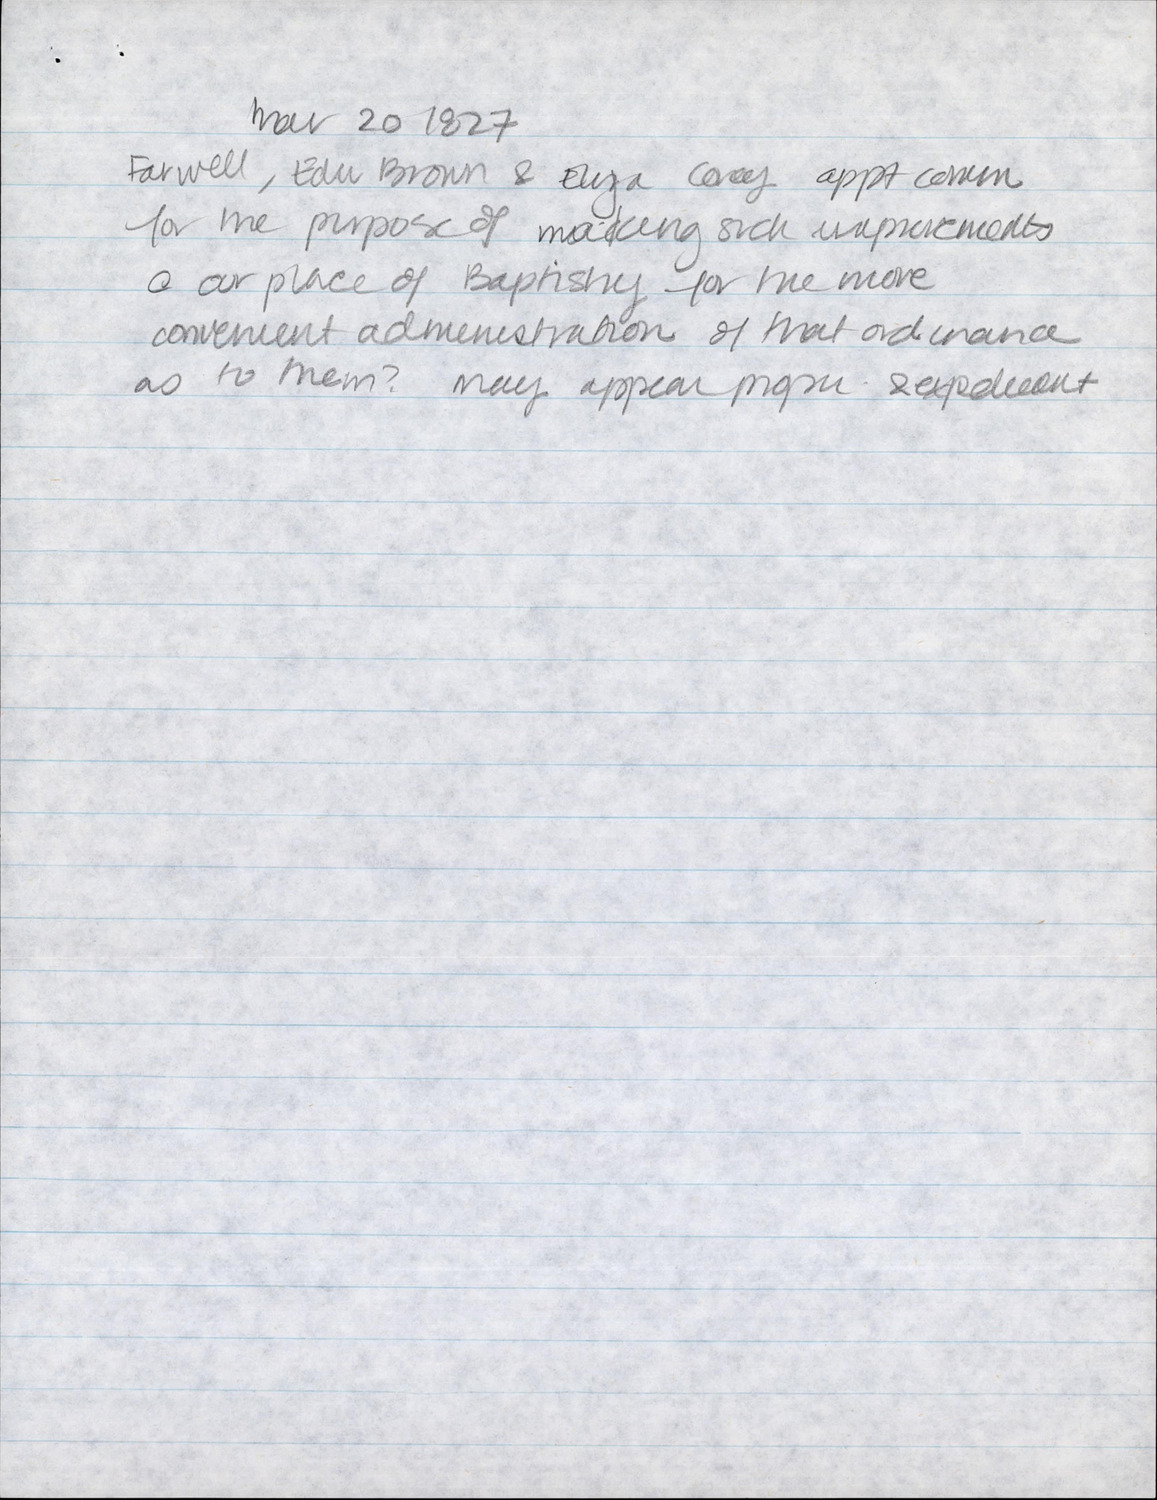 Mar 20 1827
Farwell, Edw Brown & Eliza Corey appt comm
for the purpose of making such improvements
@ our place of Baptistry for the more
convenient administration of that ordinance
as to them? may appear proper & expedient